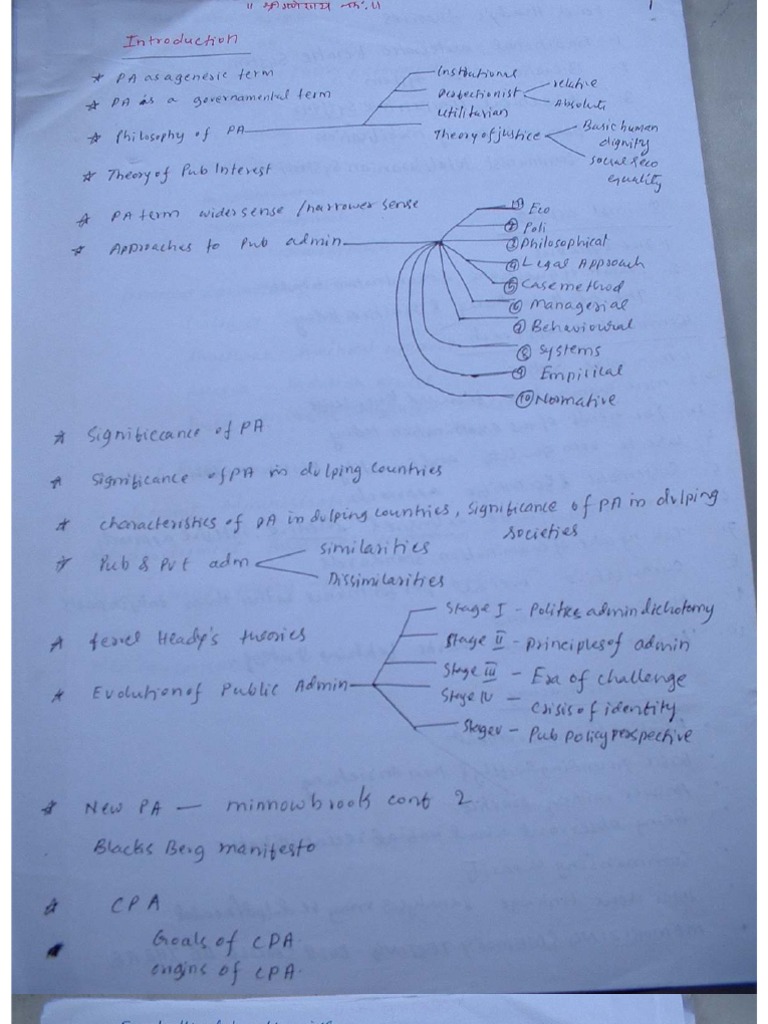 ॥ श्री गणेशाय नमः ॥
1
Introduction
* PA as a generic term
* PA is a governamental term
* Philosophy of PA
Institutional
Perfectionist
relative
Absolute
utilitarian
Theory of justice
Basic human dignity
social & eco equality
* Theory of Pub Interest
* PA term wider sense / narrower sense
* Approaches to Pub admin
① Eco
② Poli
③ Philosophical
④ Legal Approach
⑤ Case method
⑥ Managerial
⑦ Behavioural
⑧ Systems
⑨ Empirical
⑩ Normative
* Significance of PA
* Significance of PA in dvlping countries
* characteristics of PA in dvlping countries, significance of PA in dvlping
societies
* Pub & Pvt adm
Similarities
Dissimilarities
* ferrel Heady's theories
* Evolution of Public Admin
Stage I - Politics admin dichotomy
Stage II - principles of admin
Stage III - Era of challenge
Stage IV - Crisis of identity
Stage V - Pub policy perspective
* New PA — minnowbrook conf 2
Blacks Berg manifesto
* CPA
Goals of CPA
origins of CPA